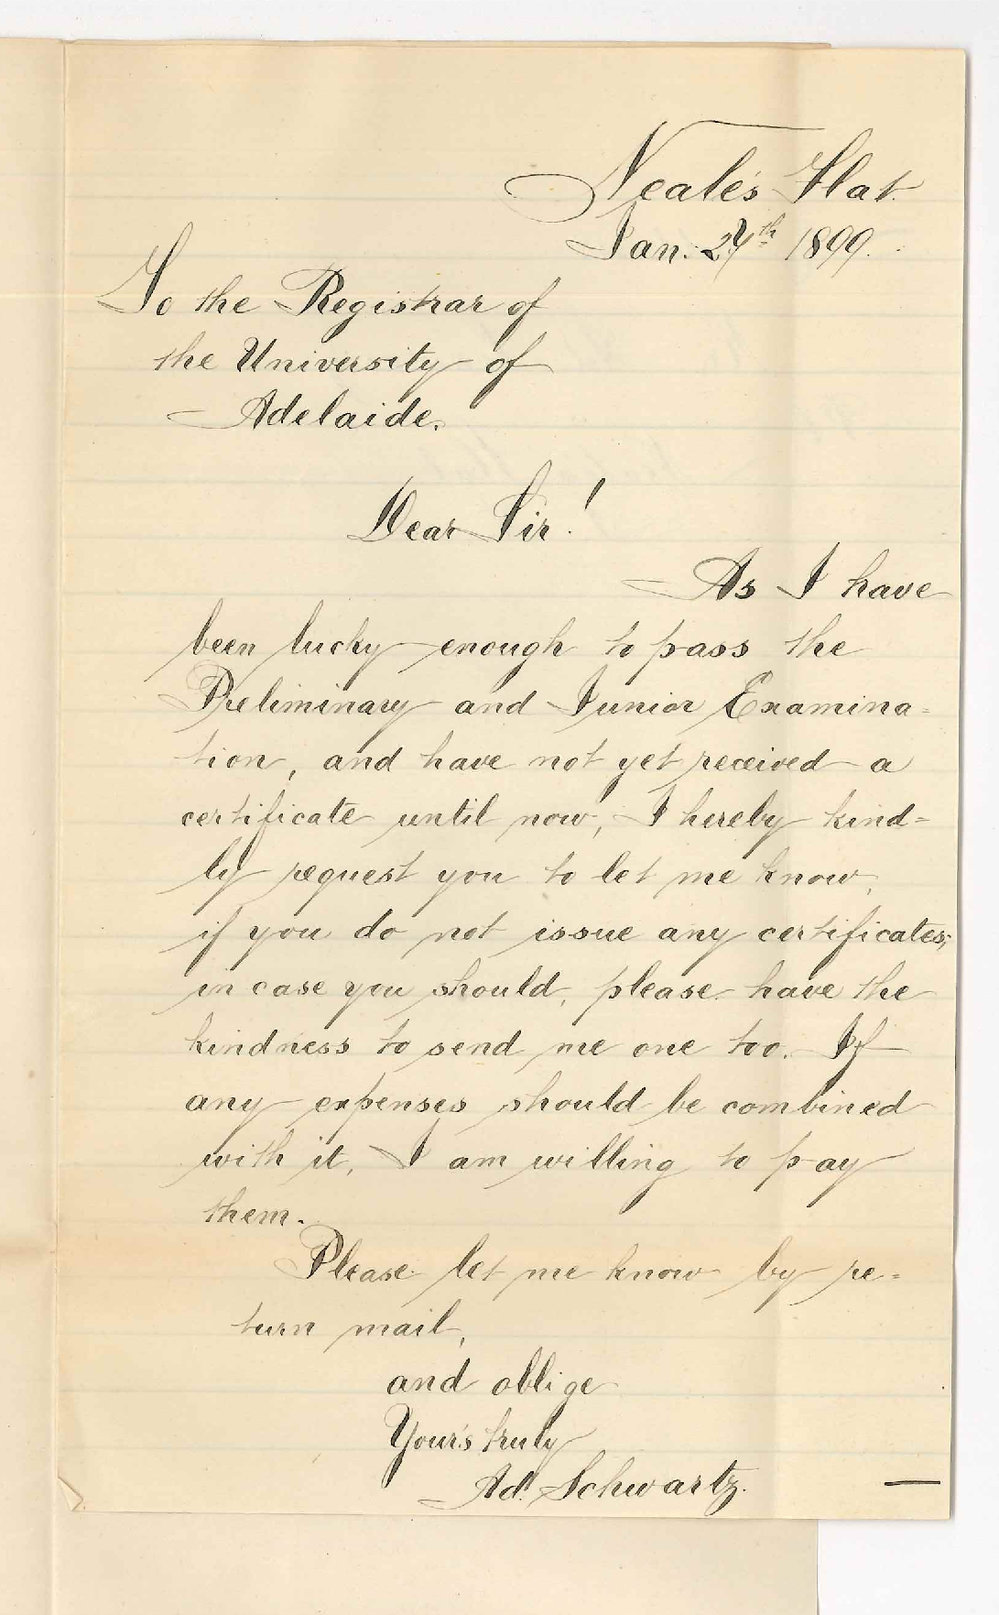 Neale's Flat.
Jan. 27th 1899.
To the Registrar of
the University of
Adelaide.
Dear Sir!
As I have
been lucky enough to pass the
Preliminary and Junior Examina=
tion, and have not yet received a
certificate until now, I hereby kind=
ly request you to let me know,
if you do not issue any certificates;
in case you should, please have the
kindness to send me one too. If
any expenses should be combined
with it, I am willing to pay
them.
Please let me know by re=
turn mail,
and oblige
Your's truly
Ad. Schwartz.